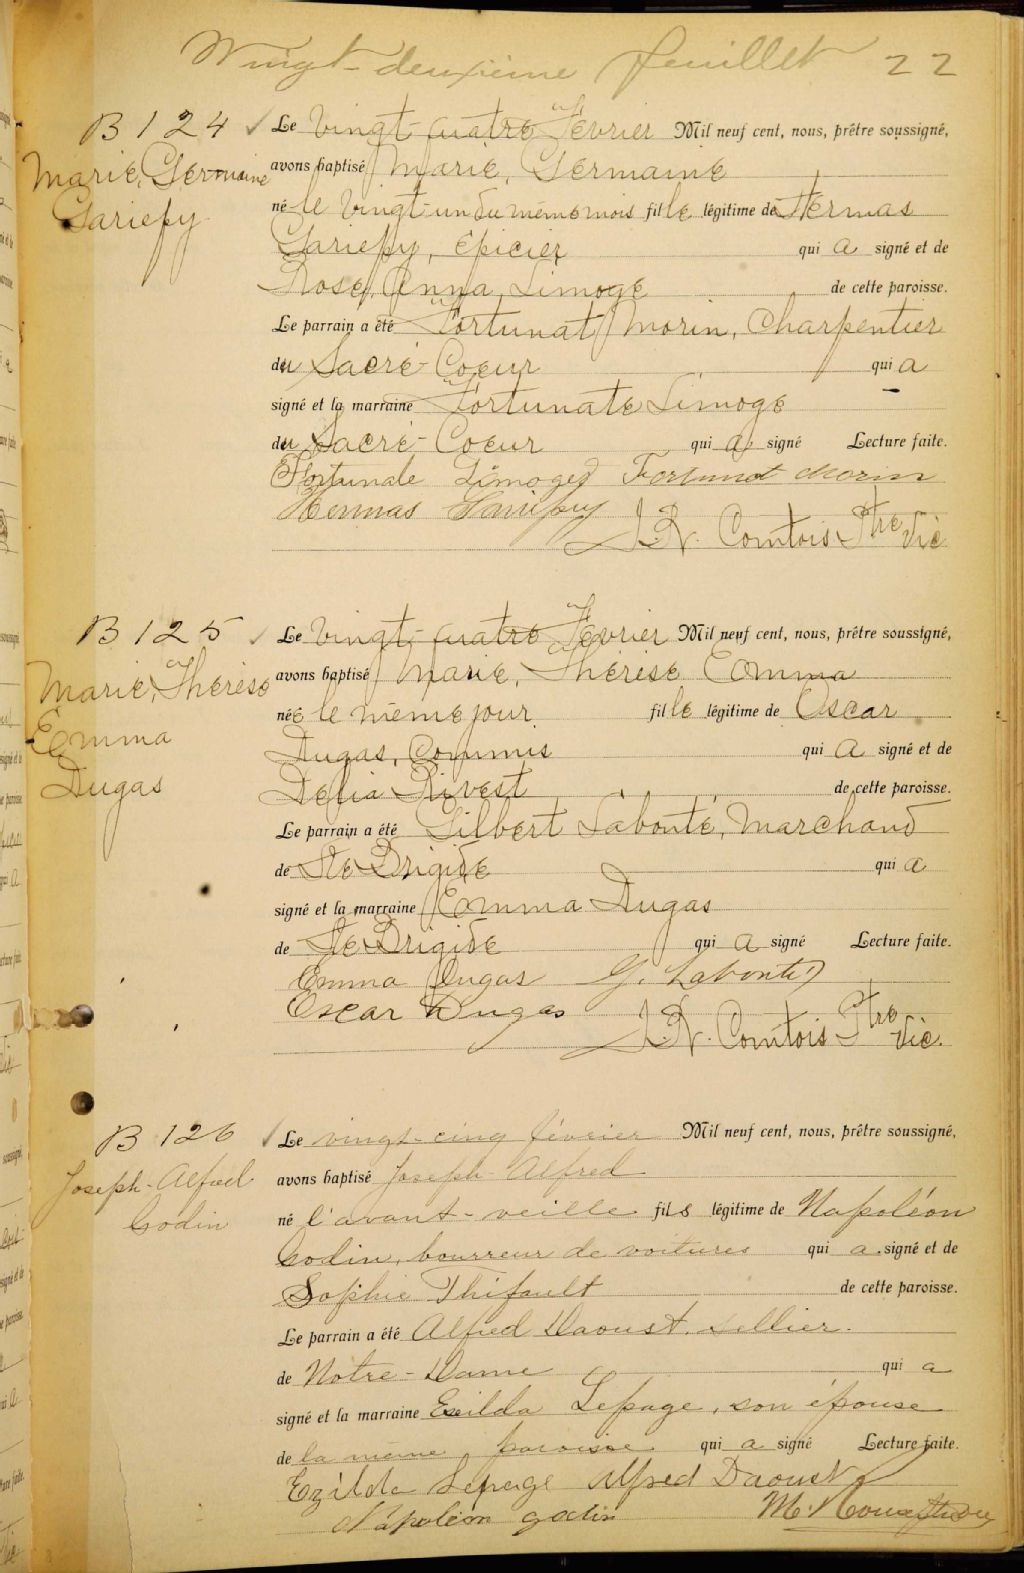 Vingt-deuxième feuillet 22
B 124
Marie, Germaine
Gariépy
Le Vingt-quatre Février Mil neuf cent, nous, prêtre soussigné,
avons baptisé Marie, Germaine
né le Vingt-un du même mois fille légitime de Hermas
Gariépy, Épicier qui a signé et de
Rose Anna Limoge de cette paroisse.
Le parrain a été Fortunat Morin, Charpentier
du Sacré-Coeur qui a
signé et la marraine Fortunate Limoge
du Sacré-Coeur qui a signé Lecture faite.
Fortunate Limoges Fortunat Morin
Hermas Gariépy
J.N. Comtois Ptre Vic
B 125
Marie, Thérèse
Emma
Dugas
Le Vingt-quatre Février Mil neuf cent, nous, prêtre soussigné,
avons baptisé Marie, Thérèse Emma
née le même jour fille légitime de Oscar
Dugas, Commis qui a signé et de
Délia Rivest de cette paroisse.
Le parrain a été Gilbert Labonté, Marchand
de Ste Brigide qui a
signé et la marraine Emma Dugas
de Ste Brigide qui a signé Lecture faite.
Emma Dugas G. Labonté
Oscar Dugas
J.N. Comtois Ptre Vic.
B 126
Joseph-Alfred
Godin
Le vingt-cinq février Mil neuf cent, nous, prêtre soussigné,
avons baptisé Joseph-Alfred
né l'avant-veille fils légitime de Napoléon
Godin, bourreur de voitures qui a signé et de
Sophie Thifault de cette paroisse.
Le parrain a été Alfred Daoust, sellier.
de Notre-Dame qui a
signé et la marraine Exilda Lepage, son épouse
de la même paroisse qui a signé Lecture faite.
Ezilda Lepage Alfred Daoust
Napoléon godin